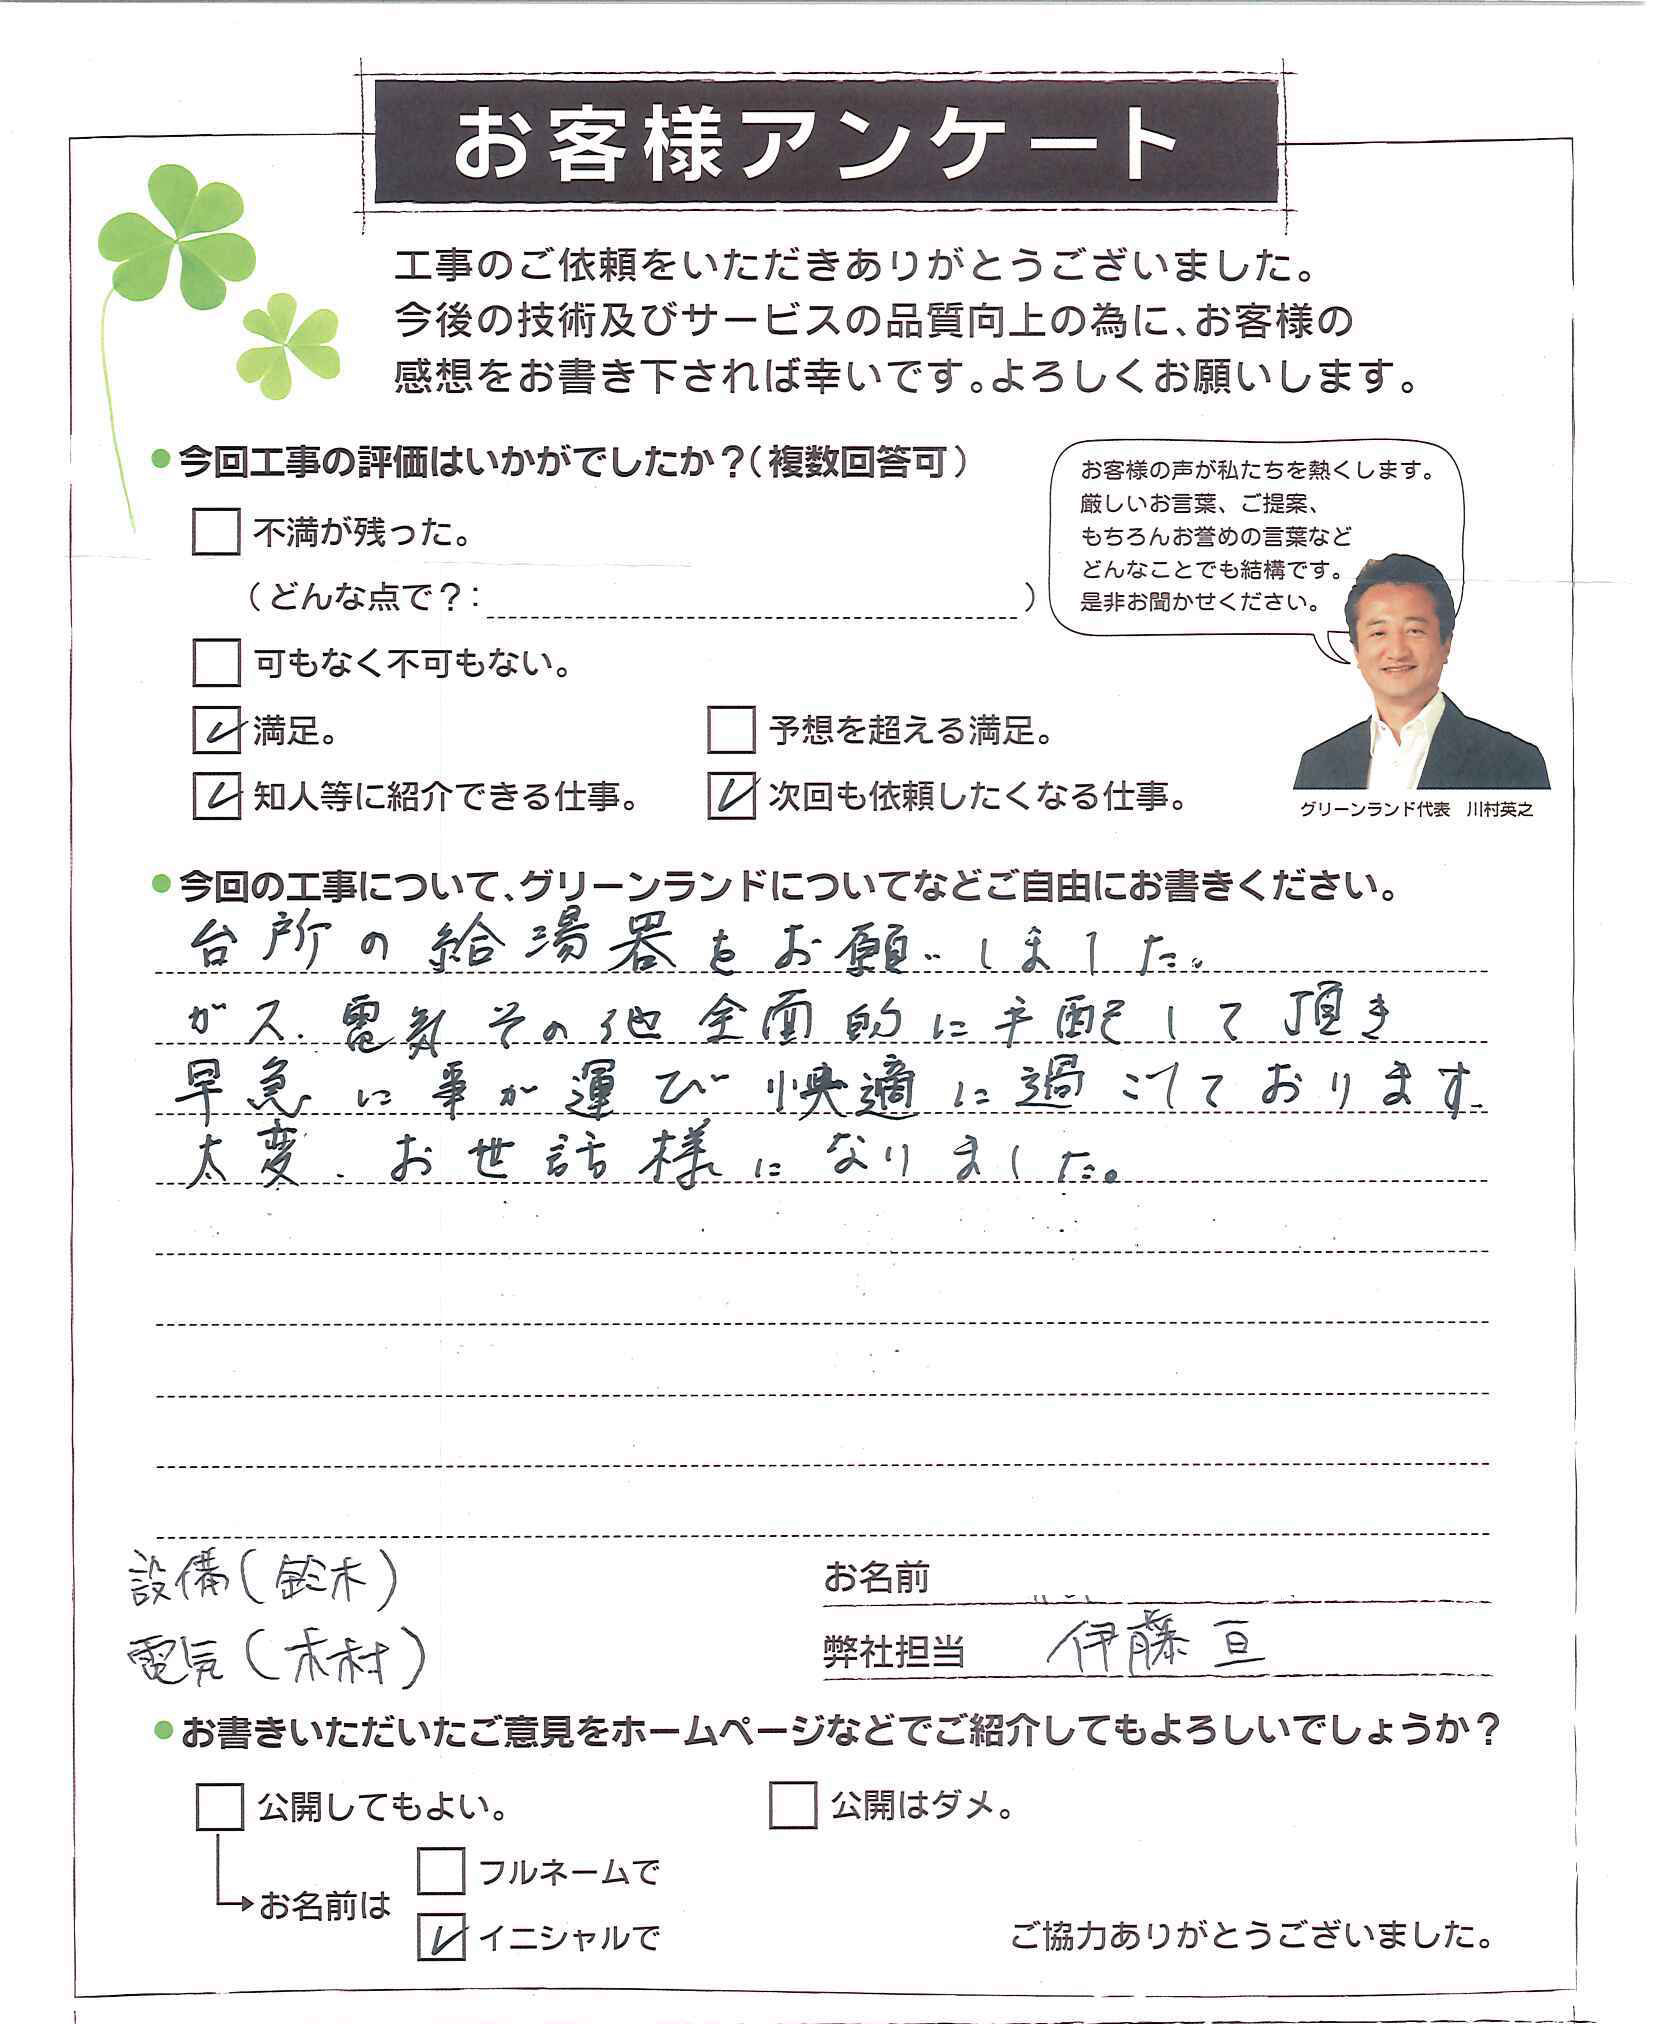 お客様アンケート
工事のご依頼をいただきありがとうございました。
今後の技術及びサービスの品質向上の為に、お客様の
感想をお書き下されば幸いです。よろしくお願いします。
今回工事の評価はいかがでしたか？（複数回答可）
不満が残った。
（どんな点で？：　）
可もなく不可もない。
満足。
予想を超える満足。
知人等に紹介できる仕事。
次回も依頼したくなる仕事。
お客様の声が私たちを熱くします。
厳しいお言葉、ご提案、
もちろんお誉めの言葉など
どんなことでも結構です。
是非お聞かせください。
グリーンランド代表　川村英之
今回の工事について、グリーンランドについてなどご自由にお書きください。
台所の給湯器をお願いしました。
ガス、電気その他全面的に手配して頂き
早急に事が運び快適に過ごしております
大変、お世話様になりました。
設備（鈴木）
電気（木村）
お名前
弊社担当　伊藤 亘
お書きいただいたご意見をホームページなどでご紹介してもよろしいでしょうか？
公開してもよい。
公開はダメ。
お名前は
フルネームで
イニシャルで
ご協力ありがとうございました。